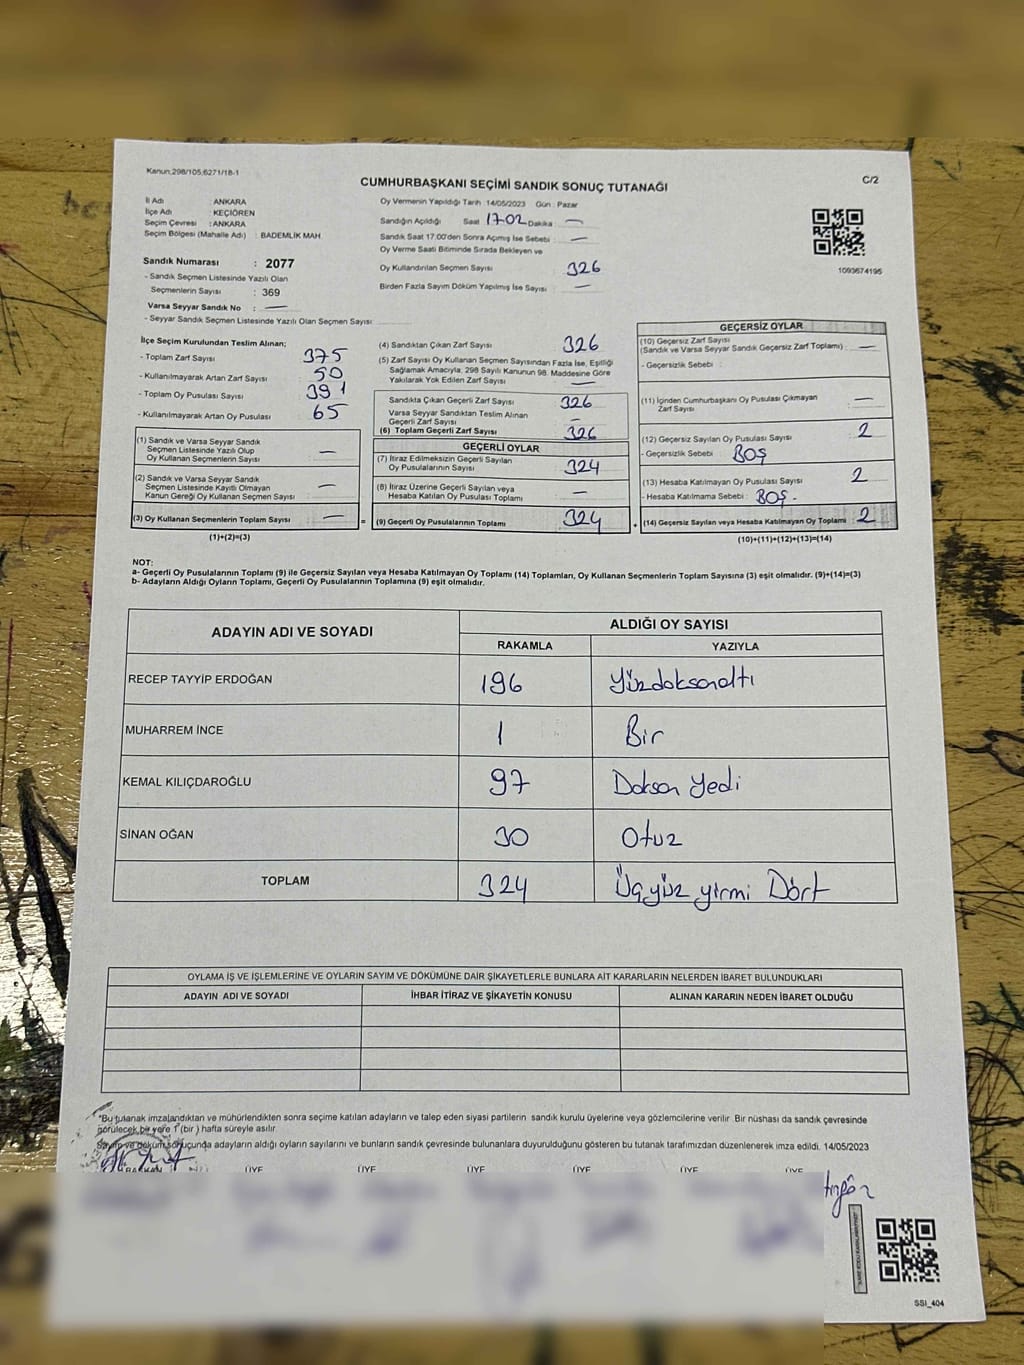 Kanun:298/105;6271/18-1
CUMHURBAŞKANI SEÇİMİ SANDIK SONUÇ TUTANAĞI
C/2
İl Adı : ANKARA
İlçe Adı : KEÇİÖREN
Seçim Çevresi : ANKARA
Seçim Bölgesi (Mahalle Adı) : BADEMLİK MAH.
Sandık Numarası : 2077
- Sandık Seçmen Listesinde Yazılı Olan
Seçmenlerin Sayısı : 369
Varsa Seyyar Sandık No : —
- Seyyar Sandık Seçmen Listesinde Yazılı Olan Seçmen Sayısı:
Oy Vermenin Yapıldığı Tarih 14/05/2023 Gün : Pazar
Sandığın Açıldığı Saat 17.02 Dakika : —
Sandık Saat 17:00'den Sonra Açımış İse Sebebi : —
Oy Verme Saati Bitiminde Sırada Bekleyen ve
Oy Kullandırılan Seçmen Sayısı 326
Birden Fazla Sayım Döküm Yapılmış İse Sayısı : —
1093674195
İlçe Seçim Kurulundan Teslim Alınan;
- Toplam Zarf Sayısı : 375
- Kullanılmayarak Artan Zarf Sayısı : 50
- Toplam Oy Pusulası Sayısı : 391
- Kullanılmayarak Artan Oy Pusulası : 65
(1) Sandık ve Varsa Seyyar Sandık
Seçmen Listesinde Yazılı Olup
Oy Kullanan Seçmenlerin Sayısı : —
(2) Sandık ve Varsa Seyyar Sandık
Seçmen Listesinde Kayıtlı Olmayan
Kanun Gereği Oy Kullanan Seçmen Sayısı : —
(3) Oy Kullanan Seçmenlerin Toplam Sayısı : —
(1)+(2)=(3)
(4) Sandıktan Çıkan Zarf Sayısı : 326
(5) Zarf Sayısı Oy Kullanan Seçmen Sayısından Fazla İse, Eşitliği
Sağlamak Amacıyla, 298 Sayılı Kanunun 98. Maddesine Göre
Yakılarak Yok Edilen Zarf Sayısı : —
Sandıkta Çıkan Geçerli Zarf Sayısı : 326
Varsa Seyyar Sandıktan Teslim Alınan
Geçerli Zarf Sayısı : —
(6) Toplam Geçerli Zarf Sayısı : 326
GEÇERLİ OYLAR
(7) İtiraz Edilmeksizin Geçerli Sayılan
Oy Pusulalarının Sayısı : 324
(8) İtiraz Üzerine Geçerli Sayılan veya
Hesaba Katılan Oy Pusulası Toplamı : —
= (9) Geçerli Oy Pusulalarının Toplamı : 324 +
GEÇERSİZ OYLAR
(10) Geçersiz Zarf Sayısı
(Sandık ve Varsa Seyyar Sandık Geçersiz Zarf Toplamı) : —
- Geçersizlik Sebebi :
(11) İçinden Cumhurbaşkanı Oy Pusulası Çıkmayan
Zarf Sayısı : —
(12) Geçersiz Sayılan Oy Pusulası Sayısı : 2
- Geçersizlik Sebebi : BOŞ
(13) Hesaba Katılmayan Oy Pusulası Sayısı : 2
- Hesaba Katılmama Sebebi : BOŞ.
(14) Geçersiz Sayılan veya Hesaba Katılmayan Oy Toplamı : 2
(10)+(11)+(12)+(13)=(14)
NOT:
a- Geçerli Oy Pusulalarının Toplamı (9) ile Geçersiz Sayılan veya Hesaba Katılmayan Oy Toplamı (14) Toplamları, Oy Kullanan Seçmenlerin Toplam Sayısına (3) eşit olmalıdır. (9)+(14)=(3)
b- Adayların Aldığı Oyların Toplamı, Geçerli Oy Pusulalarının Toplamına (9) eşit olmalıdır.
ADAYIN ADI VE SOYADI
ALDIĞI OY SAYISI
RAKAMLA YAZIYLA
RECEP TAYYİP ERDOĞAN 196 Yüzdoksanaltı
MUHARREM İNCE 1 Bir
KEMAL KILIÇDAROĞLU 97 Doksan Yedi
SİNAN OĞAN 30 Otuz
TOPLAM 324 Üçyüz yirmi Dört
OYLAMA İŞ VE İŞLEMLERİNE VE OYLARIN SAYIM VE DÖKÜMÜNE DAİR ŞİKAYETLERLE BUNLARA AİT KARARLARIN NELERDEN İBARET BULUNDUKLARI
ADAYIN ADI VE SOYADI İHBAR İTİRAZ VE ŞİKAYETİN KONUSU ALINAN KARARIN NEDEN İBARET OLDUĞU
*Bu tutanak imzalandıktan ve mühürlendikten sonra seçime katılan adayların ve talep eden siyasi partilerin sandık kurulu üyelerine veya gözlemcilerine verilir. Bir nüshası da sandık çevresinde
görülecek bir yere 1 (bir) hafta süreyle asılır.
Sayım ve döküm sonucunda adayların aldığı oyların sayılarını ve bunların sandık çevresinde bulunanlara duyurulduğunu gösteren bu tutanak tarafımızdan düzenlenerek imza edildi. 14/05/2023
BAŞKAN ÜYE ÜYE ÜYE ÜYE ÜYE ÜYE
SSI_404